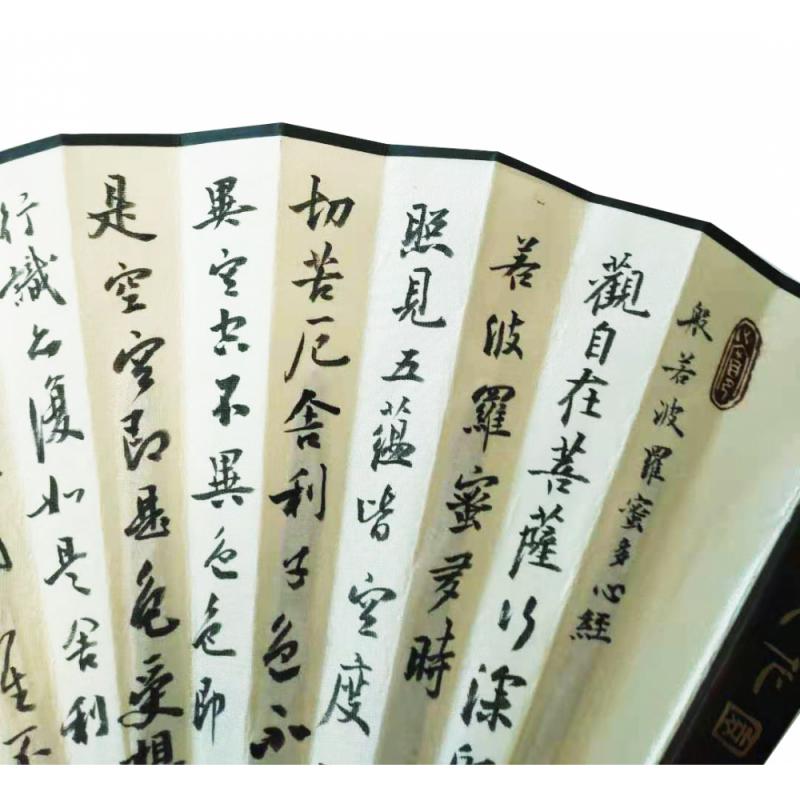 般若波羅蜜多心經
觀自在菩薩行深般
若波羅蜜多時
照見五蘊皆空度
切苦厄舍利子色不
異空空不異色色即
是空空即是色受想
行識亦復如是舍利
生不